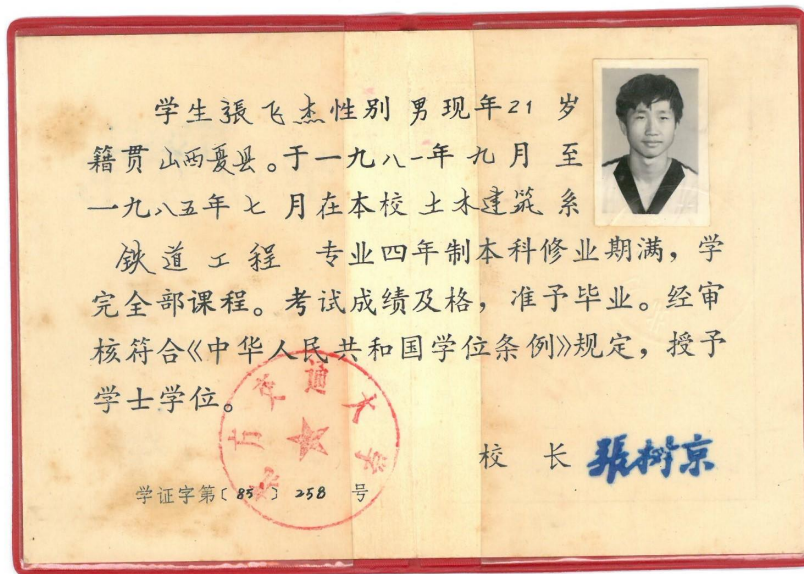 学生張飞杰性别男现年21岁
籍贯山西夏县。于一九八一年九月至
一九八五年七月在本校土木建筑系
铁道工程 专业四年制本科修业期满，学
完全部课程。考试成绩及格，准予毕业。经审
核符合《中华人民共和国学位条例》规定，授予
学士学位。
北方交通大学
校 长 張树京
学证字第〔85〕258 号